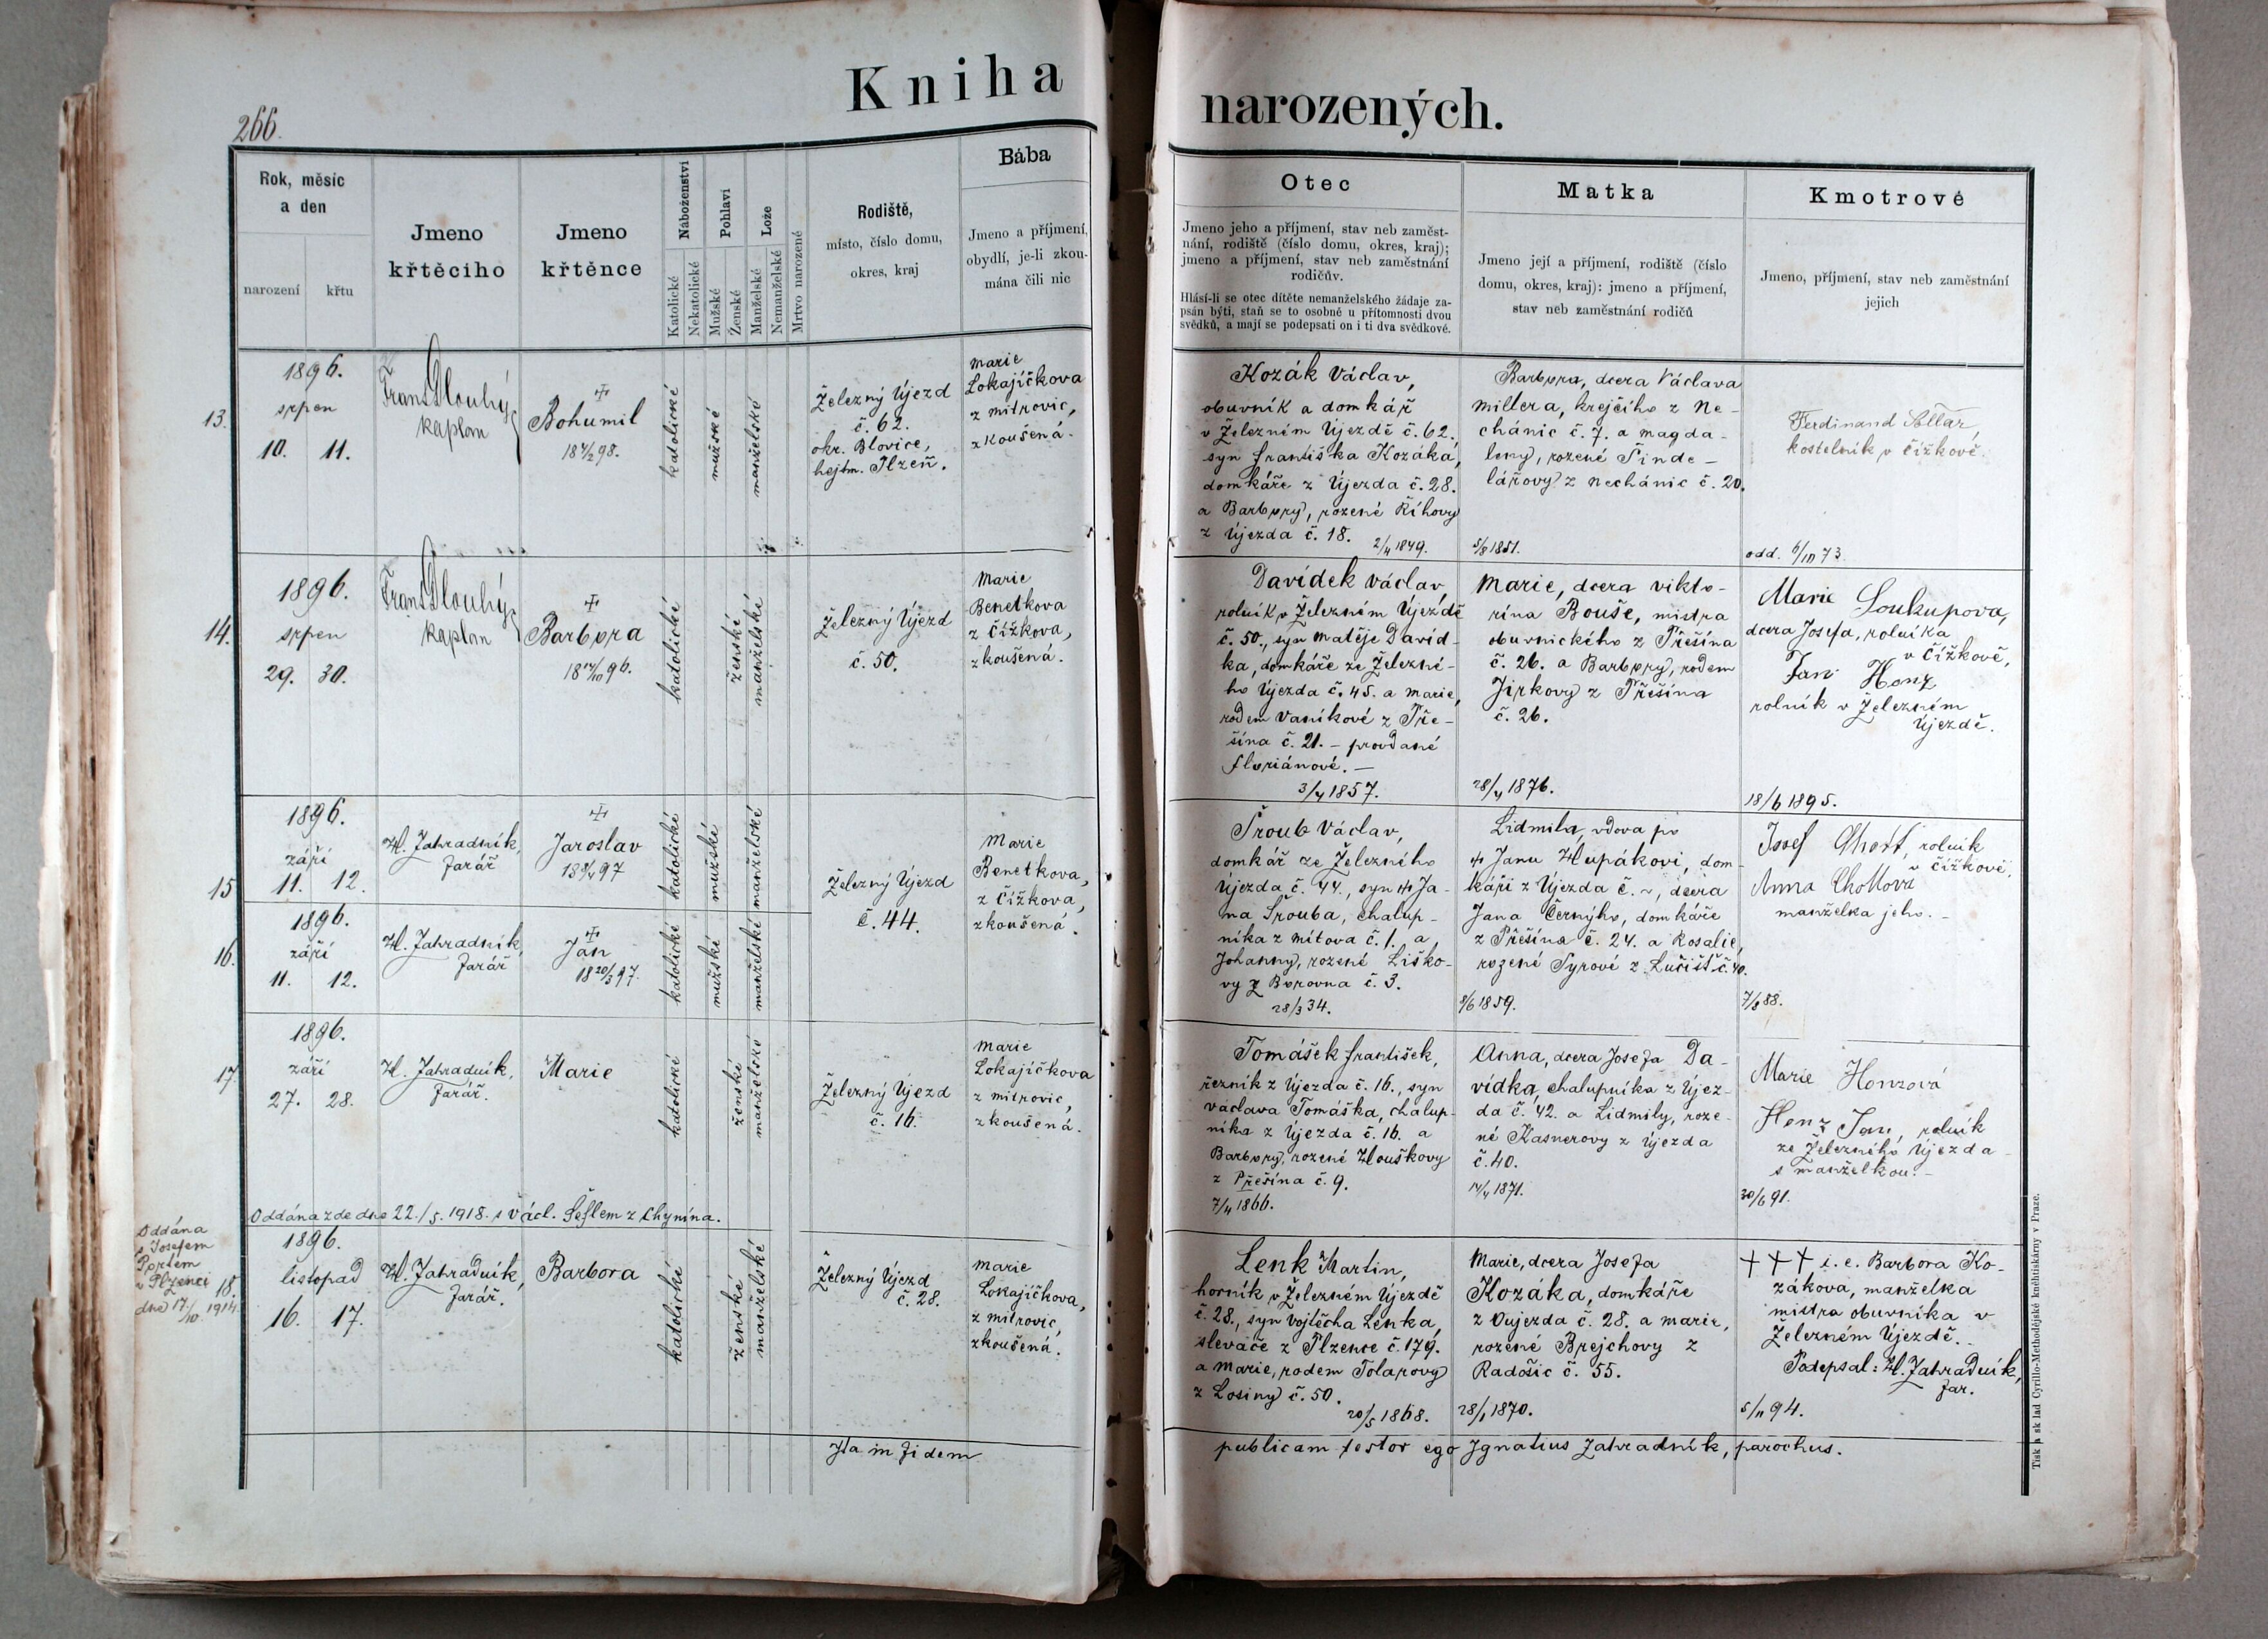 266.
Kniha narozených.
Rok, měsíc
a den
narození
křtu
Jmeno
křtěcího
Jmeno
křtěnce
Náboženství
Katolické
Nekatolické
Pohlaví
Mužské
Ženské
Lože
Manželské
Nemanželské
Mrtvo narozené
Rodiště,
místo, číslo domu,
okres, kraj
Bába
Jmeno a příjmení,
obydlí, je-li zkou-
mána čili nic
Otec
Jmeno jeho a příjmení, stav neb zaměst-
nání, rodiště (číslo domu, okres, kraj);
jmeno a příjmení, stav neb zaměstnání
rodičův.
Hlásí-li se otec dítěte nemanželského žádaje za-
psán býti, staň se to osobně u přítomnosti dvou
svědků, a mají se podepsati on i ti dva svědkové.
Matka
Jmeno její a příjmení, rodiště (číslo
domu, okres, kraj): jmeno a příjmení,
stav neb zaměstnání rodičů
Kmotrové
Jmeno, příjmení, stav neb zaměstnání
jejich
13.
1896.
srpen
10. 11.
Frant. Dlouhý
kaplan
Bohumil
98.
katolické
mužské
manželské
Železný Újezd
č. 62.
okr. Blovice,
hejtm. Plzeň.
Marie
Lokajíčkova
z Mitrovic,
zkoušená.
Kozák Václav,
obuvník a domkář
v Železném Újezdě č. 62.,
syn Františka Kozáka,
domkáře z Újezda č. 28.
a Barbory, rozené Říhovy
z Újezda č. 18.
2/4 1849.
Barbora, dcera Václava
Millera, krejčího z Ne-
chánic č. 7. a Magda-
leny, rozené Šinde-
lářovy z Nechánic č. 20.
5/8 1851.
Ferdinand
kostelník v Čížkově.
odd. 73.
14.
1896.
srpen
29. 30.
Frant. Dlouhý
kaplan
Barbora
18 17/10 96.
katolické
ženské
manželské
Železný Újezd
č. 50.
Marie
Benetkova
z Čížkova,
zkoušená.
Davídek Václav,
rolník v Železném Újezdě
č. 50., syn Matěje David-
ka, domkáře ze Železné-
ho Újezda č. 45. a Marie,
rodem Vaníkové z Pře-
šína č. 21. – provdané
Floriánové. —
1857.
Marie, dcera Vikto-
rína Bouše, mistra
obuvnického z Přešína
č. 26. a Barbory, rodem
Jirkovy z Přešína
č. 26.
1876.
Marie Soukupova,
dcera Josefa, rolníka
v Čížkově,
Jan Honz
rolník v Železném
Újezdě.
18/6 1895.
15
1896.
září
11. 12.
Zahradník,
farář
Jaroslav
97
katolické
mužské
manželské
Železný Újezd
č. 44.
Marie
Benetkova,
z Čížkova,
zkoušená.
Šroub Václav,
domkář ze Železného
Újezda č. 44., syn † Ja-
na Šrouba, chalup-
níka z Mítova č. 1. a
Johanny, rozené Liško-
vy z Borovna č. 3.
28/3 34.
Lidmila, vdova po
† Janu Hlupákovi, dom-
káři z Újezda č. ~, dcera
Jana Černýho, domkáře
z Přešína č. 24. a Rosalie,
rozené Syrové z Lučišť č. 40.
8/6 1859.
Josef rolník
v Čížkově.
Anna
manželka jeho. –
88.
16.
1896.
září
11. 12.
Zahradník,
farář
Jan
18 20/3 97.
katolické
mužské
manželské
17.
1896.
září
27. 28.
Zahradník,
farář.
Marie
katolické
ženské
manželské
Železný Újezd
č. 16.
Marie
Lokajíčkova
z Mitrovic,
zkoušená.
Tomášek František,
řezník z Újezda č. 16., syn
Václava Tomáška, chalup-
níka z Újezda č. 16. a
Barbory, rozené Hlouškovy
z Přešína č. 9.
7/4 1866.
Anna, dcera Josefa Da-
vídka, chalupníka z Újez-
da č. 42. a Lidmily, roze-
né Kasnerovy z Újezda
č. 40.
14/4 1871.
Marie Honzová
Honz Jan, rolník
ze Železného Újezda
s manželkou. –
91.
Oddána zde dne 22./5. 1918. s Václ. Šeflem z Chynína.
Oddána
s Josefem
v Plzenci
dne 17./10 1914.
18.
1896.
listopad
16. 17.
Zahradník,
farář.
Barbora
katolické
ženské
manželské
Železný Újezd
č. 28.
Marie
Lokajíčkova,
z Mitrovic,
zkoušená.
Lenk Martin,
horník v Železném Újezdě
č. 28., syn Vojtěcha Lenka,
slevače z Plzence č. 179.
a Marie, rodem Tolarovy
z Losiny č. 50.
20/5 1868.
Marie, dcera Josefa
Kozáka, domkáře
z Oujezda č. 28. a Marie,
rozené Brejchovy z
Radošic č. 55.
28/1 1870.
††† i. e. Barbora Ko-
zákova, manželka
mistra obuvníka v
Železném Újezdě.
Podepsal: Zahradník,
far.
5/11 94.
Ita in fidem publicam testor ego Ignatius Zahradník, parochus.
Tisk a sklad Cyrillo-Methodějské knihtiskárny v Praze.